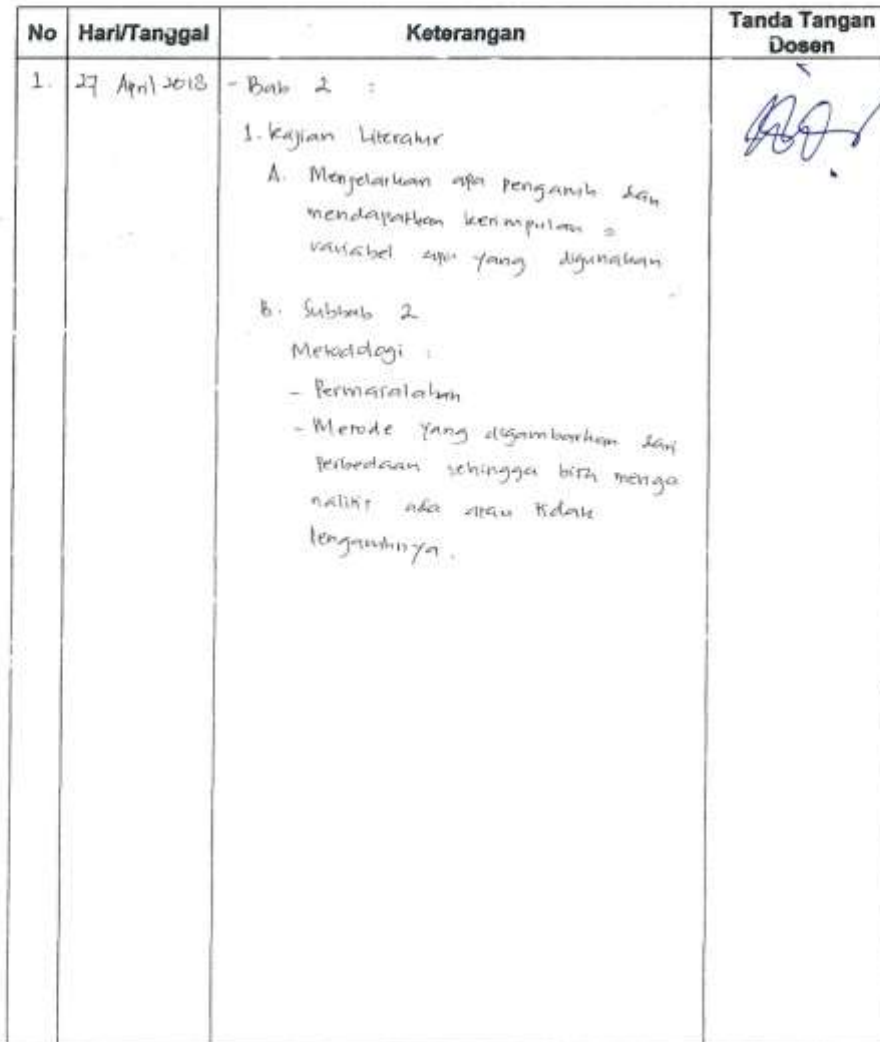 No Hari/Tanggal Keterangan Tanda Tangan Dosen
1. 27 April 2018 - Bab 2 :
1. Kajian Literatur
A. Menjelaskan apa pengaruh dan
mendapatkan kesimpulan =
variabel apa yang digunakan
B. Subbab 2
Metodologi :
- Permasalahan
- Metode yang digambarkan dari
perbedaan sehingga bisa menga
nalisis ada atau tidak
pengaruhnya.